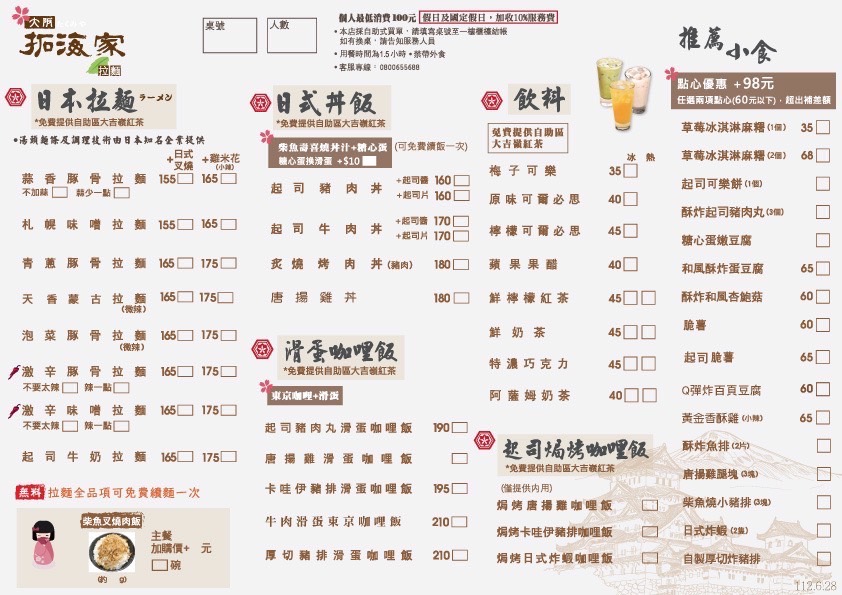 大阪
拓海家
拉麵
桌號
人數
個人最低消費100元 假日及國定假日，加收10%服務費
•本店採自助式買單，請填寫桌號至一樓櫃檯結帳
如有換桌，請告知服務人員
•用餐時間為1.5小時 •禁帶外食
•客服專線：0800655688
日本拉麵 ラーメン
*免費提供自助區大吉嶺紅茶
•湯頭麵條及調理技術由日本知名企業提供
+日式叉燒 +雞米花(小辣)
蒜香豚骨拉麵 155 165
不加蒜 蒜少一點
札幌味噌拉麵 155 165
青蔥豚骨拉麵 165 175
天香蒙古拉麵 165 175
(微辣)
泡菜豚骨拉麵 165 175
(微辣)
激辛豚骨拉麵 165 175
不要太辣 辣一點
激辛味噌拉麵 165 175
不要太辣 辣一點
起司牛奶拉麵 165 175
無料 拉麵全品項可免費續麵一次
柴魚叉燒肉飯
(約 g)
主餐
加購價+ 元
碗
日式丼飯
*免費提供自助區大吉嶺紅茶
柴魚壽喜燒丼汁+糖心蛋
糖心蛋換滑蛋 +$10
(可免費續飯一次)
起司豬肉丼 +起司醬 160
+起司片 160
起司牛肉丼 +起司醬 170
+起司片 170
炙燒烤肉丼(豬肉) 180
唐揚雞丼 180
滑蛋咖哩飯
*免費提供自助區大吉嶺紅茶
東京咖哩+滑蛋
起司豬肉丸滑蛋咖哩飯 190
唐揚雞滑蛋咖哩飯
卡哇伊豬排滑蛋咖哩飯 195
牛肉滑蛋東京咖哩飯 210
厚切豬排滑蛋咖哩飯 210
飲料
免費提供自助區
大吉嶺紅茶
冰 熱
梅子可樂 35
原味可爾必思 40
檸檬可爾必思 45
蘋果果醋 40
鮮檸檬紅茶 45
鮮奶茶 45
特濃巧克力 45
阿薩姆奶茶 40
起司焗烤咖哩飯
*免費提供自助區大吉嶺紅茶
(僅提供內用)
焗烤唐揚雞咖哩飯
焗烤卡哇伊豬排咖哩飯
焗烤日式炸蝦咖哩飯
推薦小食
點心優惠 +98元
任選兩項點心(60元以下)，超出補差額
草莓冰淇淋麻糬(1個) 35
草莓冰淇淋麻糬(2個) 68
起司可樂餅(1個)
酥炸起司豬肉丸(3個)
糖心蛋嫩豆腐
和風酥炸蛋豆腐 65
酥炸和風杏鮑菇 60
脆薯 60
起司脆薯 65
Q彈炸百頁豆腐 60
黃金香酥雞(小辣) 65
酥炸魚排(2片)
唐揚雞腿塊(3塊)
柴魚燒小豬排(3塊)
日式炸蝦(2隻)
自製厚切炸豬排
112.6.28